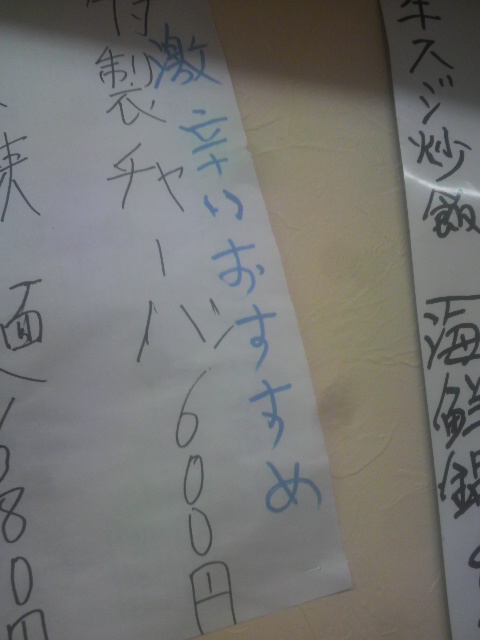 牛スジ炒飯 海鮮鍋
激辛いおすすめ
特製チャーハン600円
麺 680円